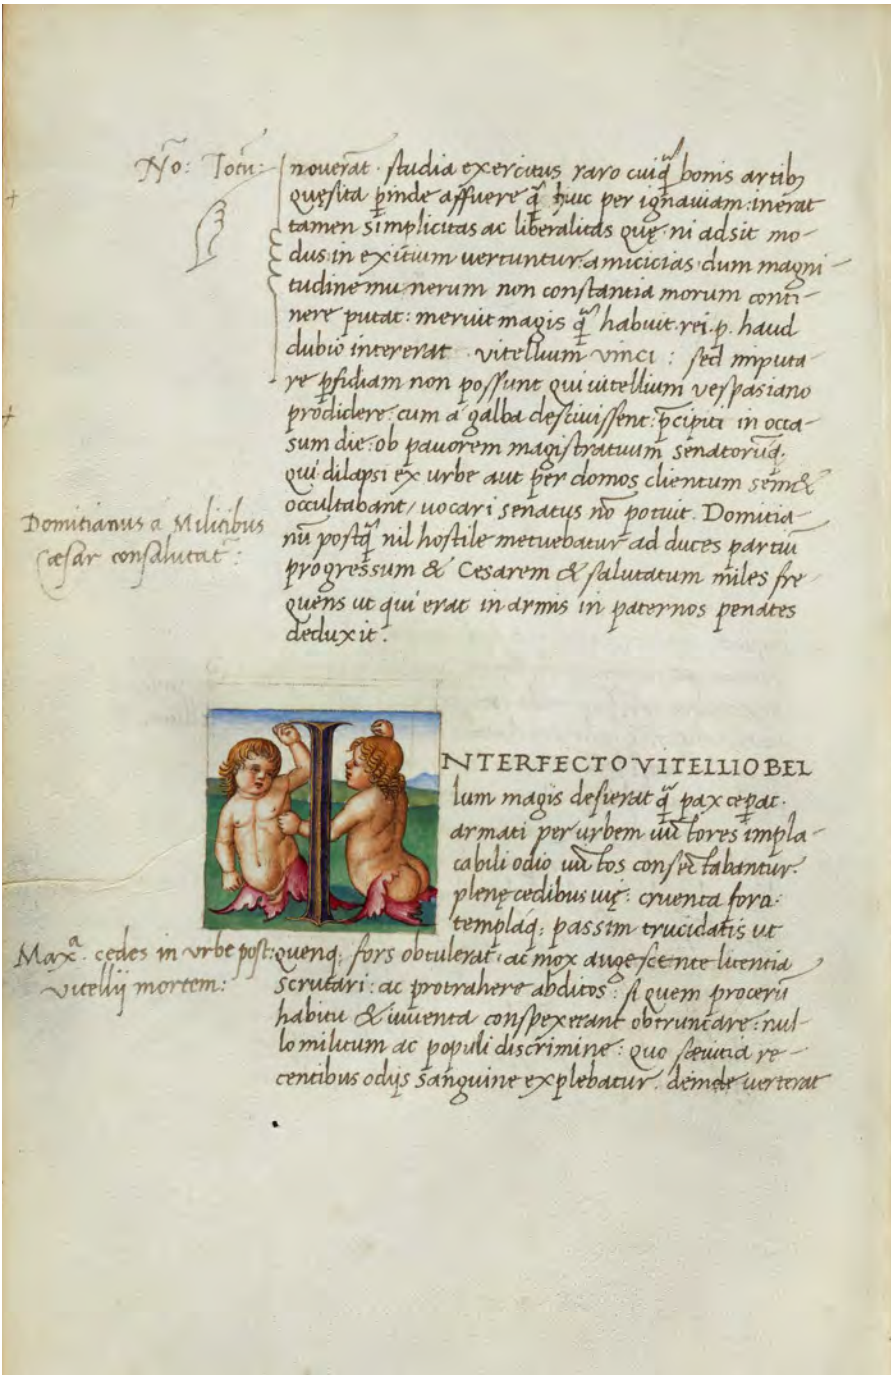 No: Totu:
noverat. studia exercitus raro cuiq̃ bonis artib;
quęsita ꝑinde affuere q̃ huic per ignauiam: inerat
tamen simplicitas ac liberalitas quę ni adsit mo-
dus: in exitium uertuntur. amicicias dum magni-
tudine munerum non constantia morum conti-
nere putat: meruit magis q̃ habuit. rei. p. haud
dubio intererat vitellium vinci: sed imputa
re ꝑfidiam non possunt qui uitellium vespasiano
prodidere: cum a galba desciuissent: p̃cipiti in occa-
sum die: ob pauorem magistratuum senatorũq;
qui dilapsi ex urbe aut per domos clientum semet
occultabant/ uocari senatus nõ potuit. Domitia-
Domitianus a Militibus
cæsar consalutat:
nũ postq̃ nil hostile metuebatur ad duces partiũ
progressum & Cesarem & salutatum miles fre-
quens ut qui erat in armis in paternos penates
deduxit.
INTERFECTO VITELLIO BEL
lum magis desierat q̃ pax ceperat.
armati per urbem uictores impla-
cabili odio uictos consectabantur.
plenę cedibus uię: cruenta fora:
templaq; passim trucidatis ut
Maxᵃ. cedes in vrbe post:
vitellij mortem:
quenq; fors obtulerat: ac mox augescente licentia
scrutari: ac protrahere abditos: si quem procerũ
habitu & iuuenta conspexerant obtruncare: nul-
lo militum ac populi discrimine: quo sæuitia re-
centibus odijs sanguine explebatur. deinde uerterat